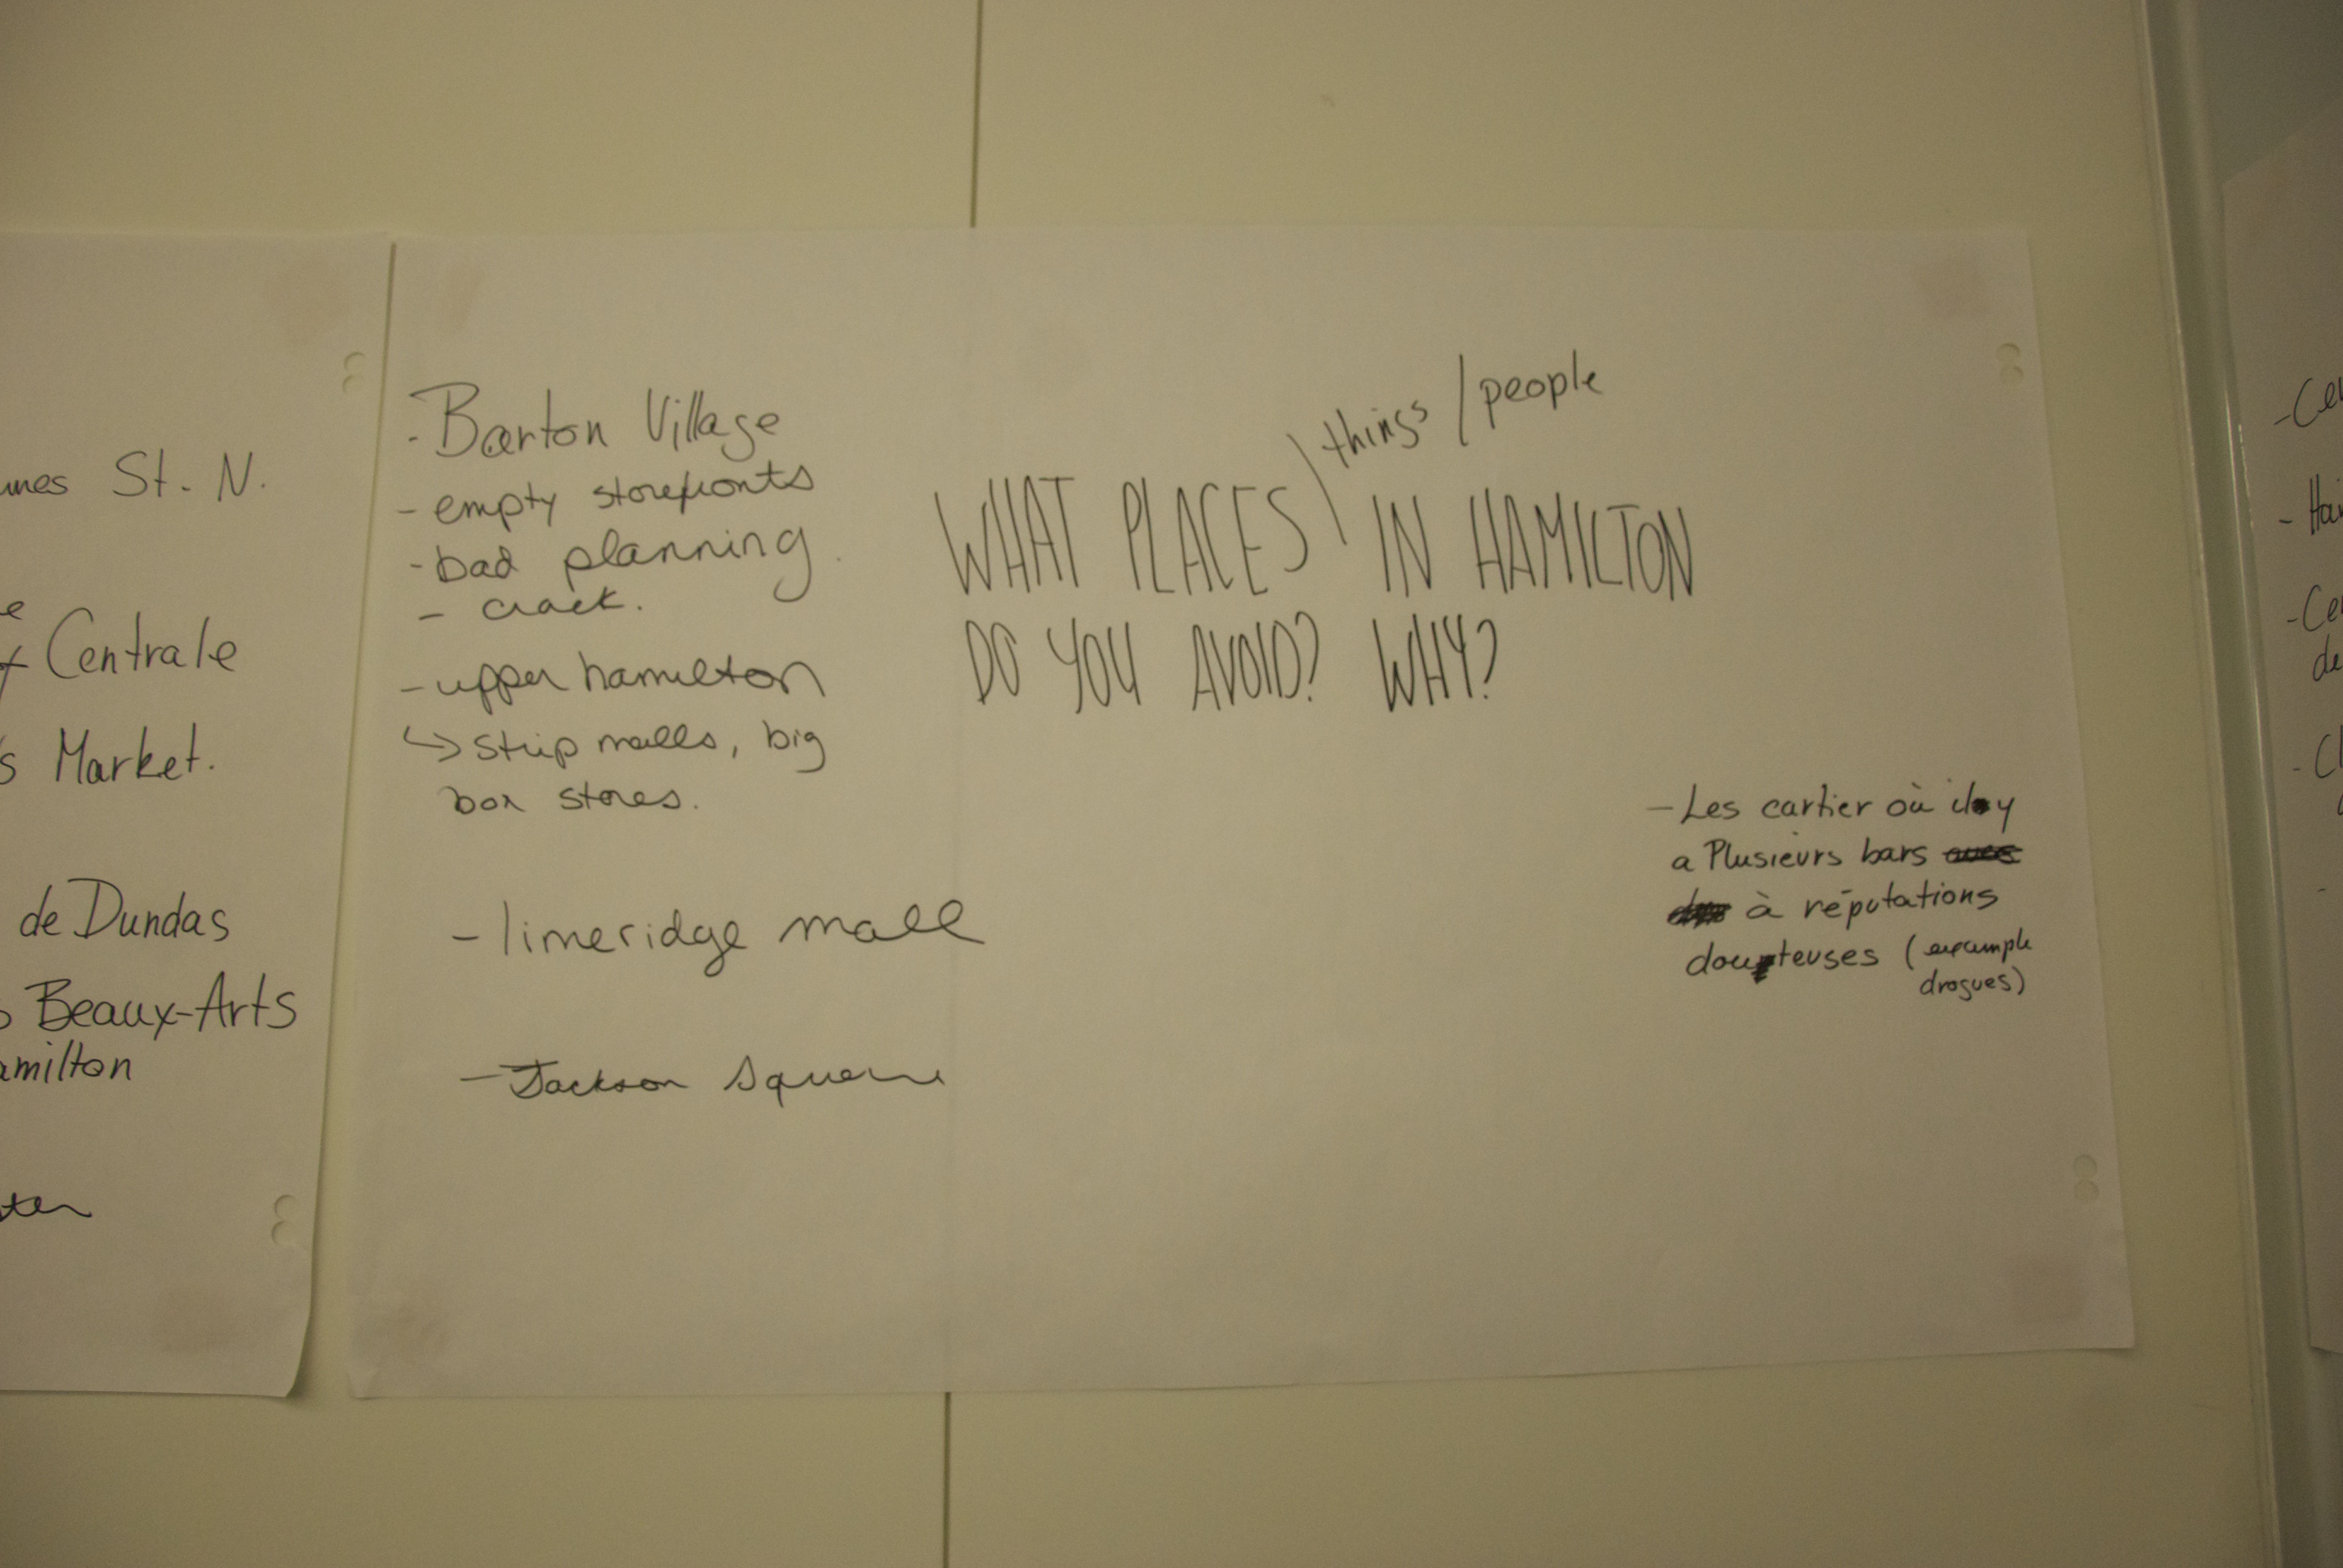 St. N.
Centrale
Market.
de Dundas
Beaux-Arts
- Barton Village
- empty storefronts
- bad planning
- crack.
- upper hamilton
↳ strip malls, big
box stores.
- limeridge mall
- Jackson Square
things / people
WHAT PLACES \ IN HAMILTON
DO YOU AVOID? WHY?
- Les cartier où il y
a Plusieurs bars
à réputations
douteuses (example
drogues)